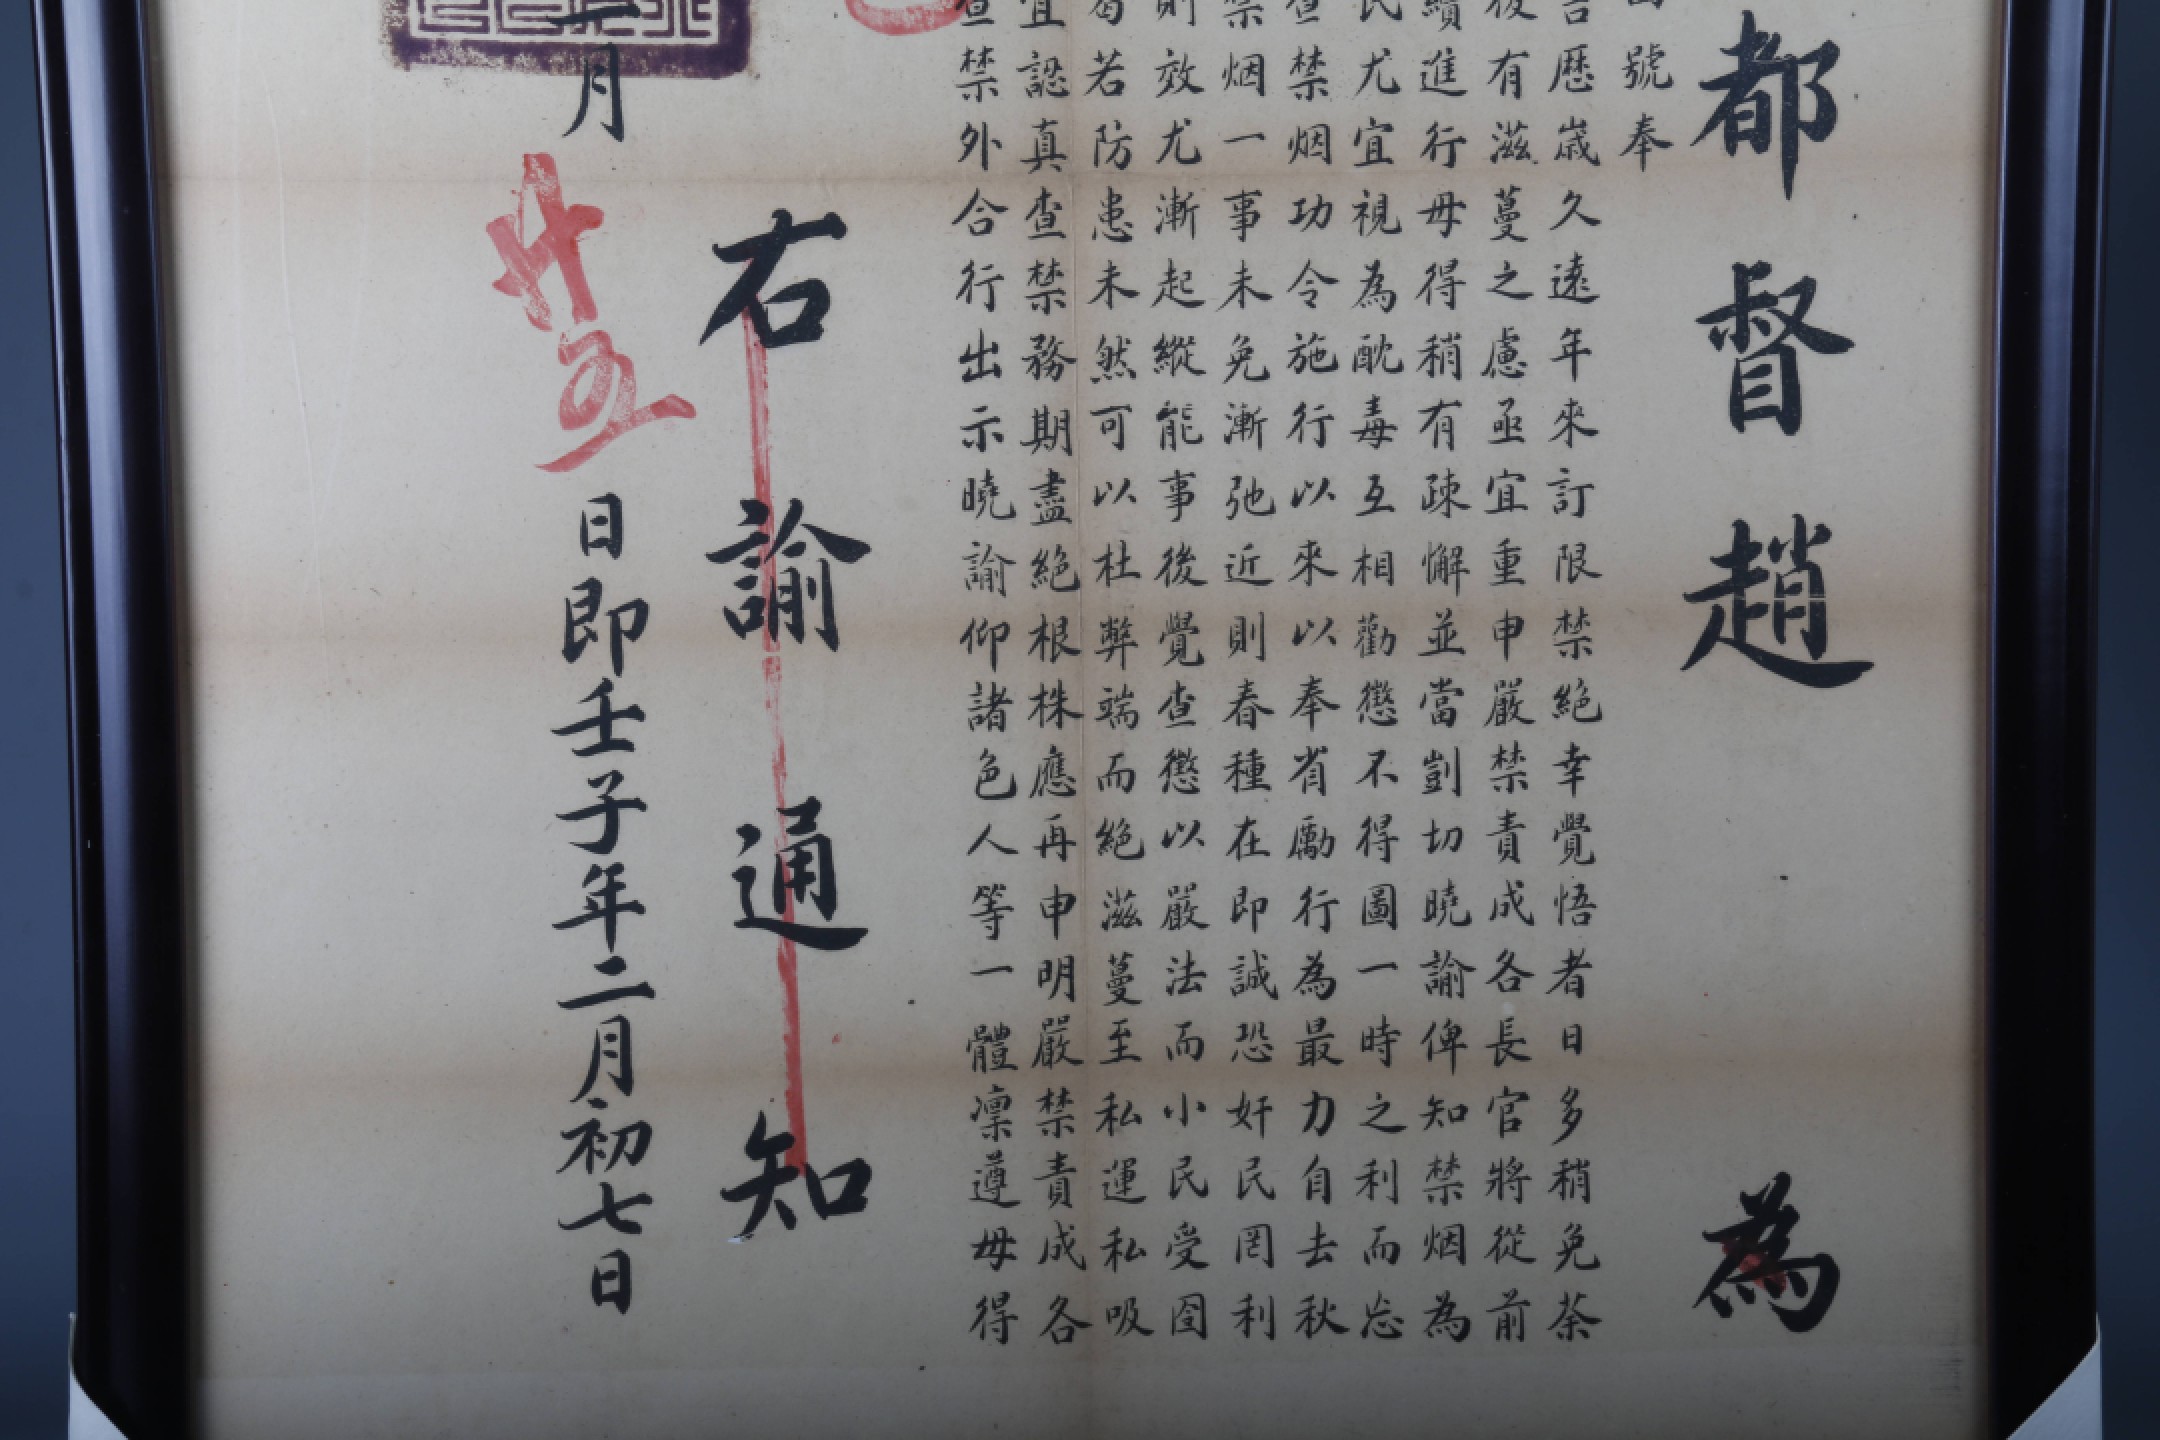 都督趙 為
號奉
告歷歲久遠年來訂限禁絕幸覺悟者日多稍免荼
後有滋蔓之慮亟宜重申嚴禁責成各長官將從前
續進行毋得稍有疎懈並當剴切曉諭俾知禁烟為
民尤宜視為酖毒互相勸懲不得圖一時之利而忘
查禁烟功令施行以來以奉省勵行為最力自去秋
禁烟一事未免漸弛近則春種在即誠恐奸民罔利
則效尤漸起縱能事後覺查懲以嚴法而小民受囹
若防患未然可以杜弊端而絕滋蔓至私運私吸
宜認真查禁務期盡絕根株應再申明嚴禁責成各
查禁外合行出示曉諭仰諸色人等一體凜遵毋得
右諭通知
月廿五日即壬子年二月初七日